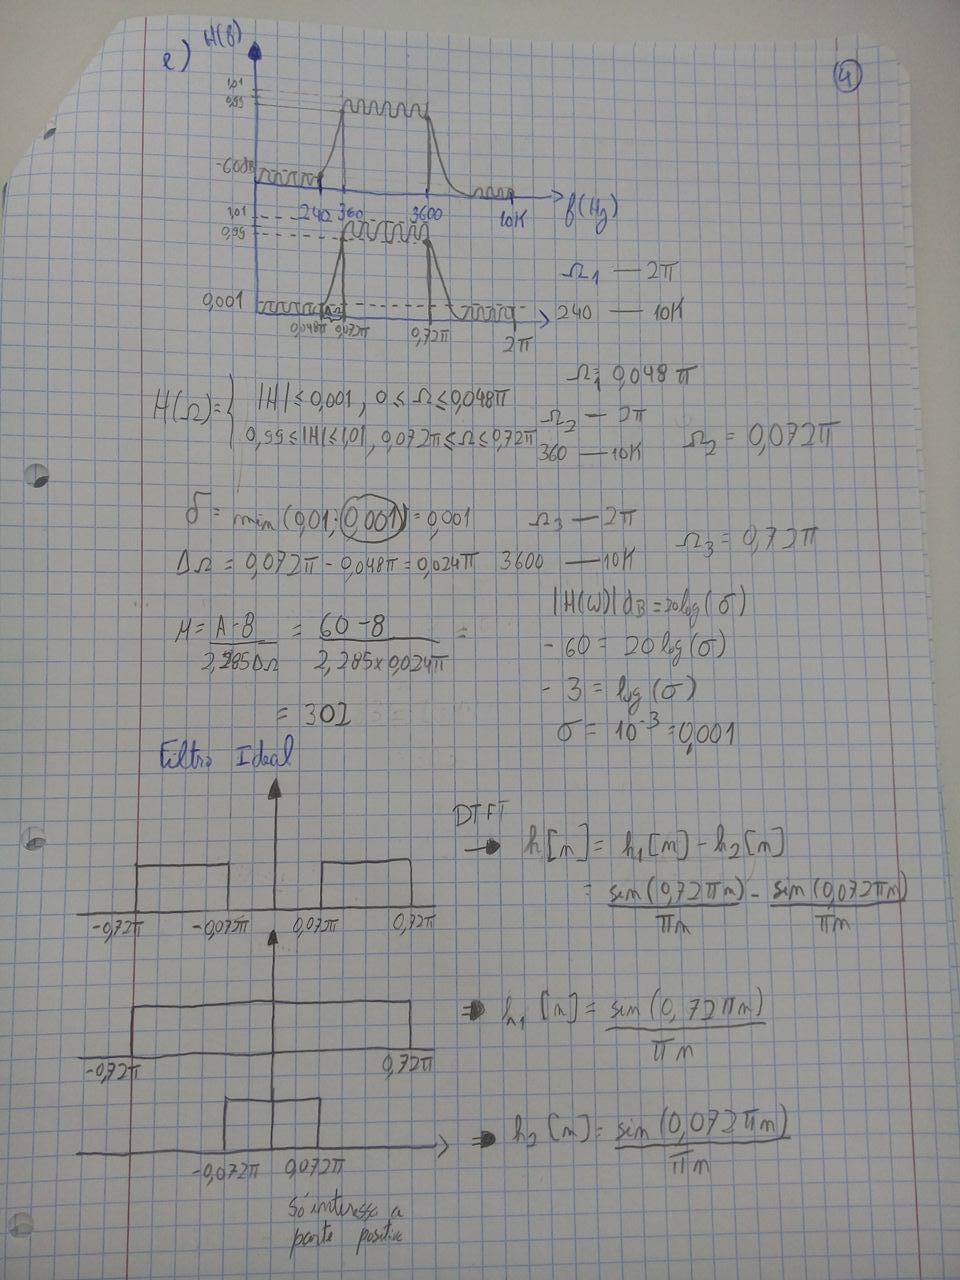 e) H(f) 4
1,01
0,99
-60dB
240 360 3600 10K f(Hz)
1,01
0,99
0,001
0,048π 0,072π 0,72π 2π
Ω₁ — 2π
240 — 10K
Ω₁ = 0,048π
H(Ω) = { |H| ≤ 0,001 , 0 ≤ Ω ≤ 0,048π
0,99 ≤ |H| ≤ 1,01 , 0,072π ≤ Ω ≤ 0,72π
Ω₂ — 2π
360 — 10K
Ω₂ = 0,072π
δ = min (0,01; 0,001) = 0,001
ΔΩ = 0,072π - 0,048π = 0,024π
Ω₃ — 2π
3600 — 10K
Ω₃ = 0,72π
M = A-8 / 2,285ΔΩ = 60-8 / 2,285×0,024π =
= 302
|H(ω)|dB = 20log(σ)
-60 = 20 log(σ)
-3 = log(σ)
σ = 10⁻³ = 0,001
Filtro Ideal
-0,72π -0,072π 0,072π 0,72π
DTFT
→ h[n] = h₁[n] - h₂[n]
= sin(0,72πn) / πn - sin(0,072πn) / πn
-0,72π 0,72π
⇒ h₁[n] = sin(0,72πn) / πn
-0,072π 0,072π
⇒ h₂[n] = sin(0,072πn) / πn
só interessa a
parte positiva